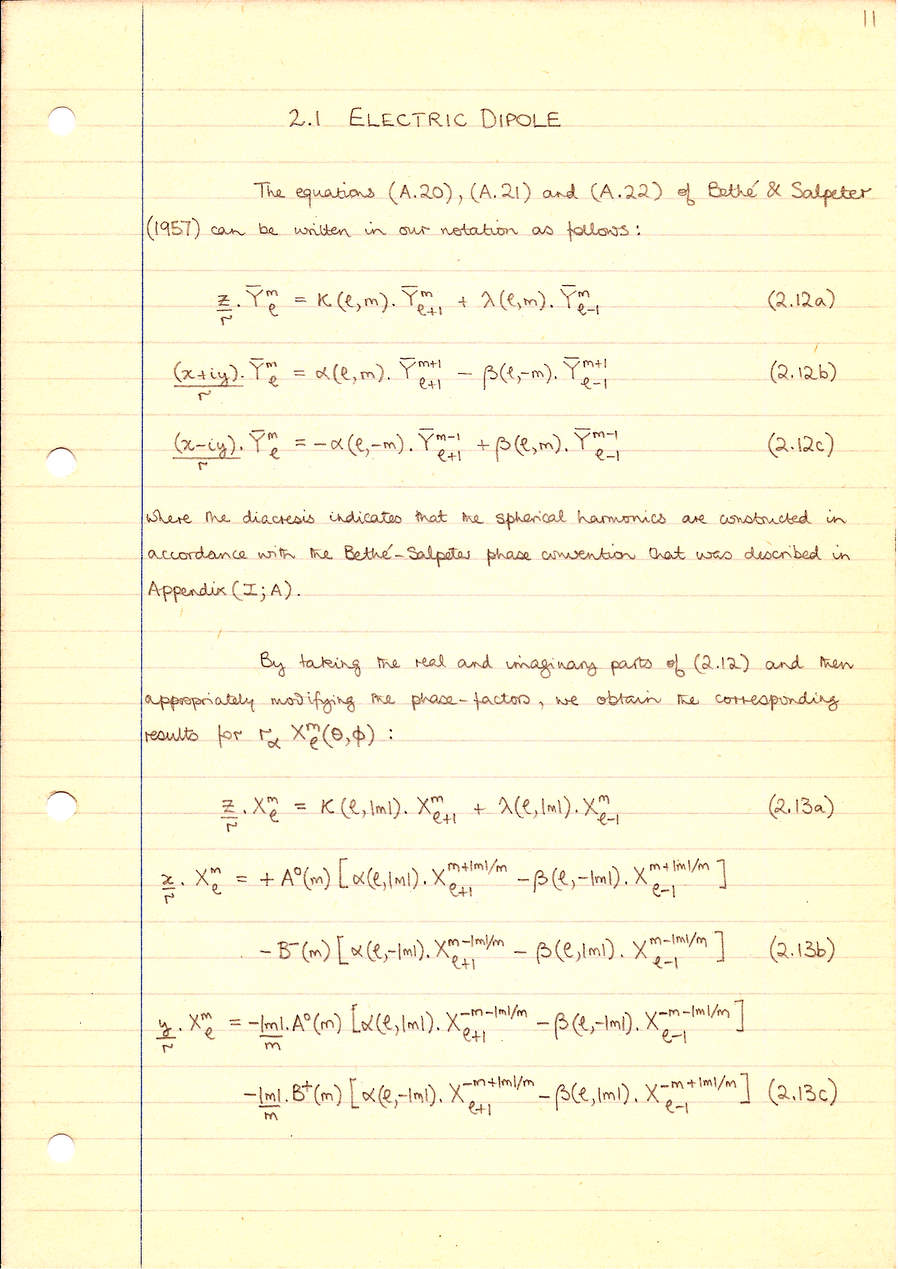 11
2.1 ELECTRIC DIPOLE
The equations (A.20), (A.21) and (A.22) of Bethé & Salpeter
(1957) can be written in our notation as follows:
z/r . Ȳ_ℓ^m = K(ℓ,m). Ȳ_{ℓ+1}^m + λ(ℓ,m). Ȳ_{ℓ-1}^m (2.12a)
(x+iy)/r . Ȳ_ℓ^m = α(ℓ,m). Ȳ_{ℓ+1}^{m+1} − β(ℓ,−m). Ȳ_{ℓ-1}^{m+1} (2.12b)
(x−iy)/r . Ȳ_ℓ^m = −α(ℓ,−m). Ȳ_{ℓ+1}^{m-1} + β(ℓ,m). Ȳ_{ℓ-1}^{m-1} (2.12c)
where the diacresis indicates that the spherical harmonics are constructed in
accordance with the Bethé-Salpeter phase convention that was described in
Appendix (I;A).
By taking the real and imaginary parts of (2.12) and then
appropriately modifying the phase-factors, we obtain the corresponding
results for r_α X_ℓ^m(θ,φ) :
z/r . X_ℓ^m = K(ℓ,|m|). X_{ℓ+1}^m + λ(ℓ,|m|). X_{ℓ-1}^m (2.13a)
x/r . X_ℓ^m = + A°(m) [α(ℓ,|m|). X_{ℓ+1}^{m+|m|/m} − β(ℓ,−|m|). X_{ℓ-1}^{m+|m|/m}]
− B⁻(m) [α(ℓ,−|m|). X_{ℓ+1}^{m−|m|/m} − β(ℓ,|m|). X_{ℓ-1}^{m−|m|/m}] (2.13b)
y/r . X_ℓ^m = −|m|/m . A°(m) [α(ℓ,|m|). X_{ℓ+1}^{−m−|m|/m} − β(ℓ,−|m|). X_{ℓ-1}^{−m−|m|/m}]
−|m|/m . B⁺(m) [α(ℓ,−|m|). X_{ℓ+1}^{−m+|m|/m} − β(ℓ,|m|). X_{ℓ-1}^{−m+|m|/m}] (2.13c)